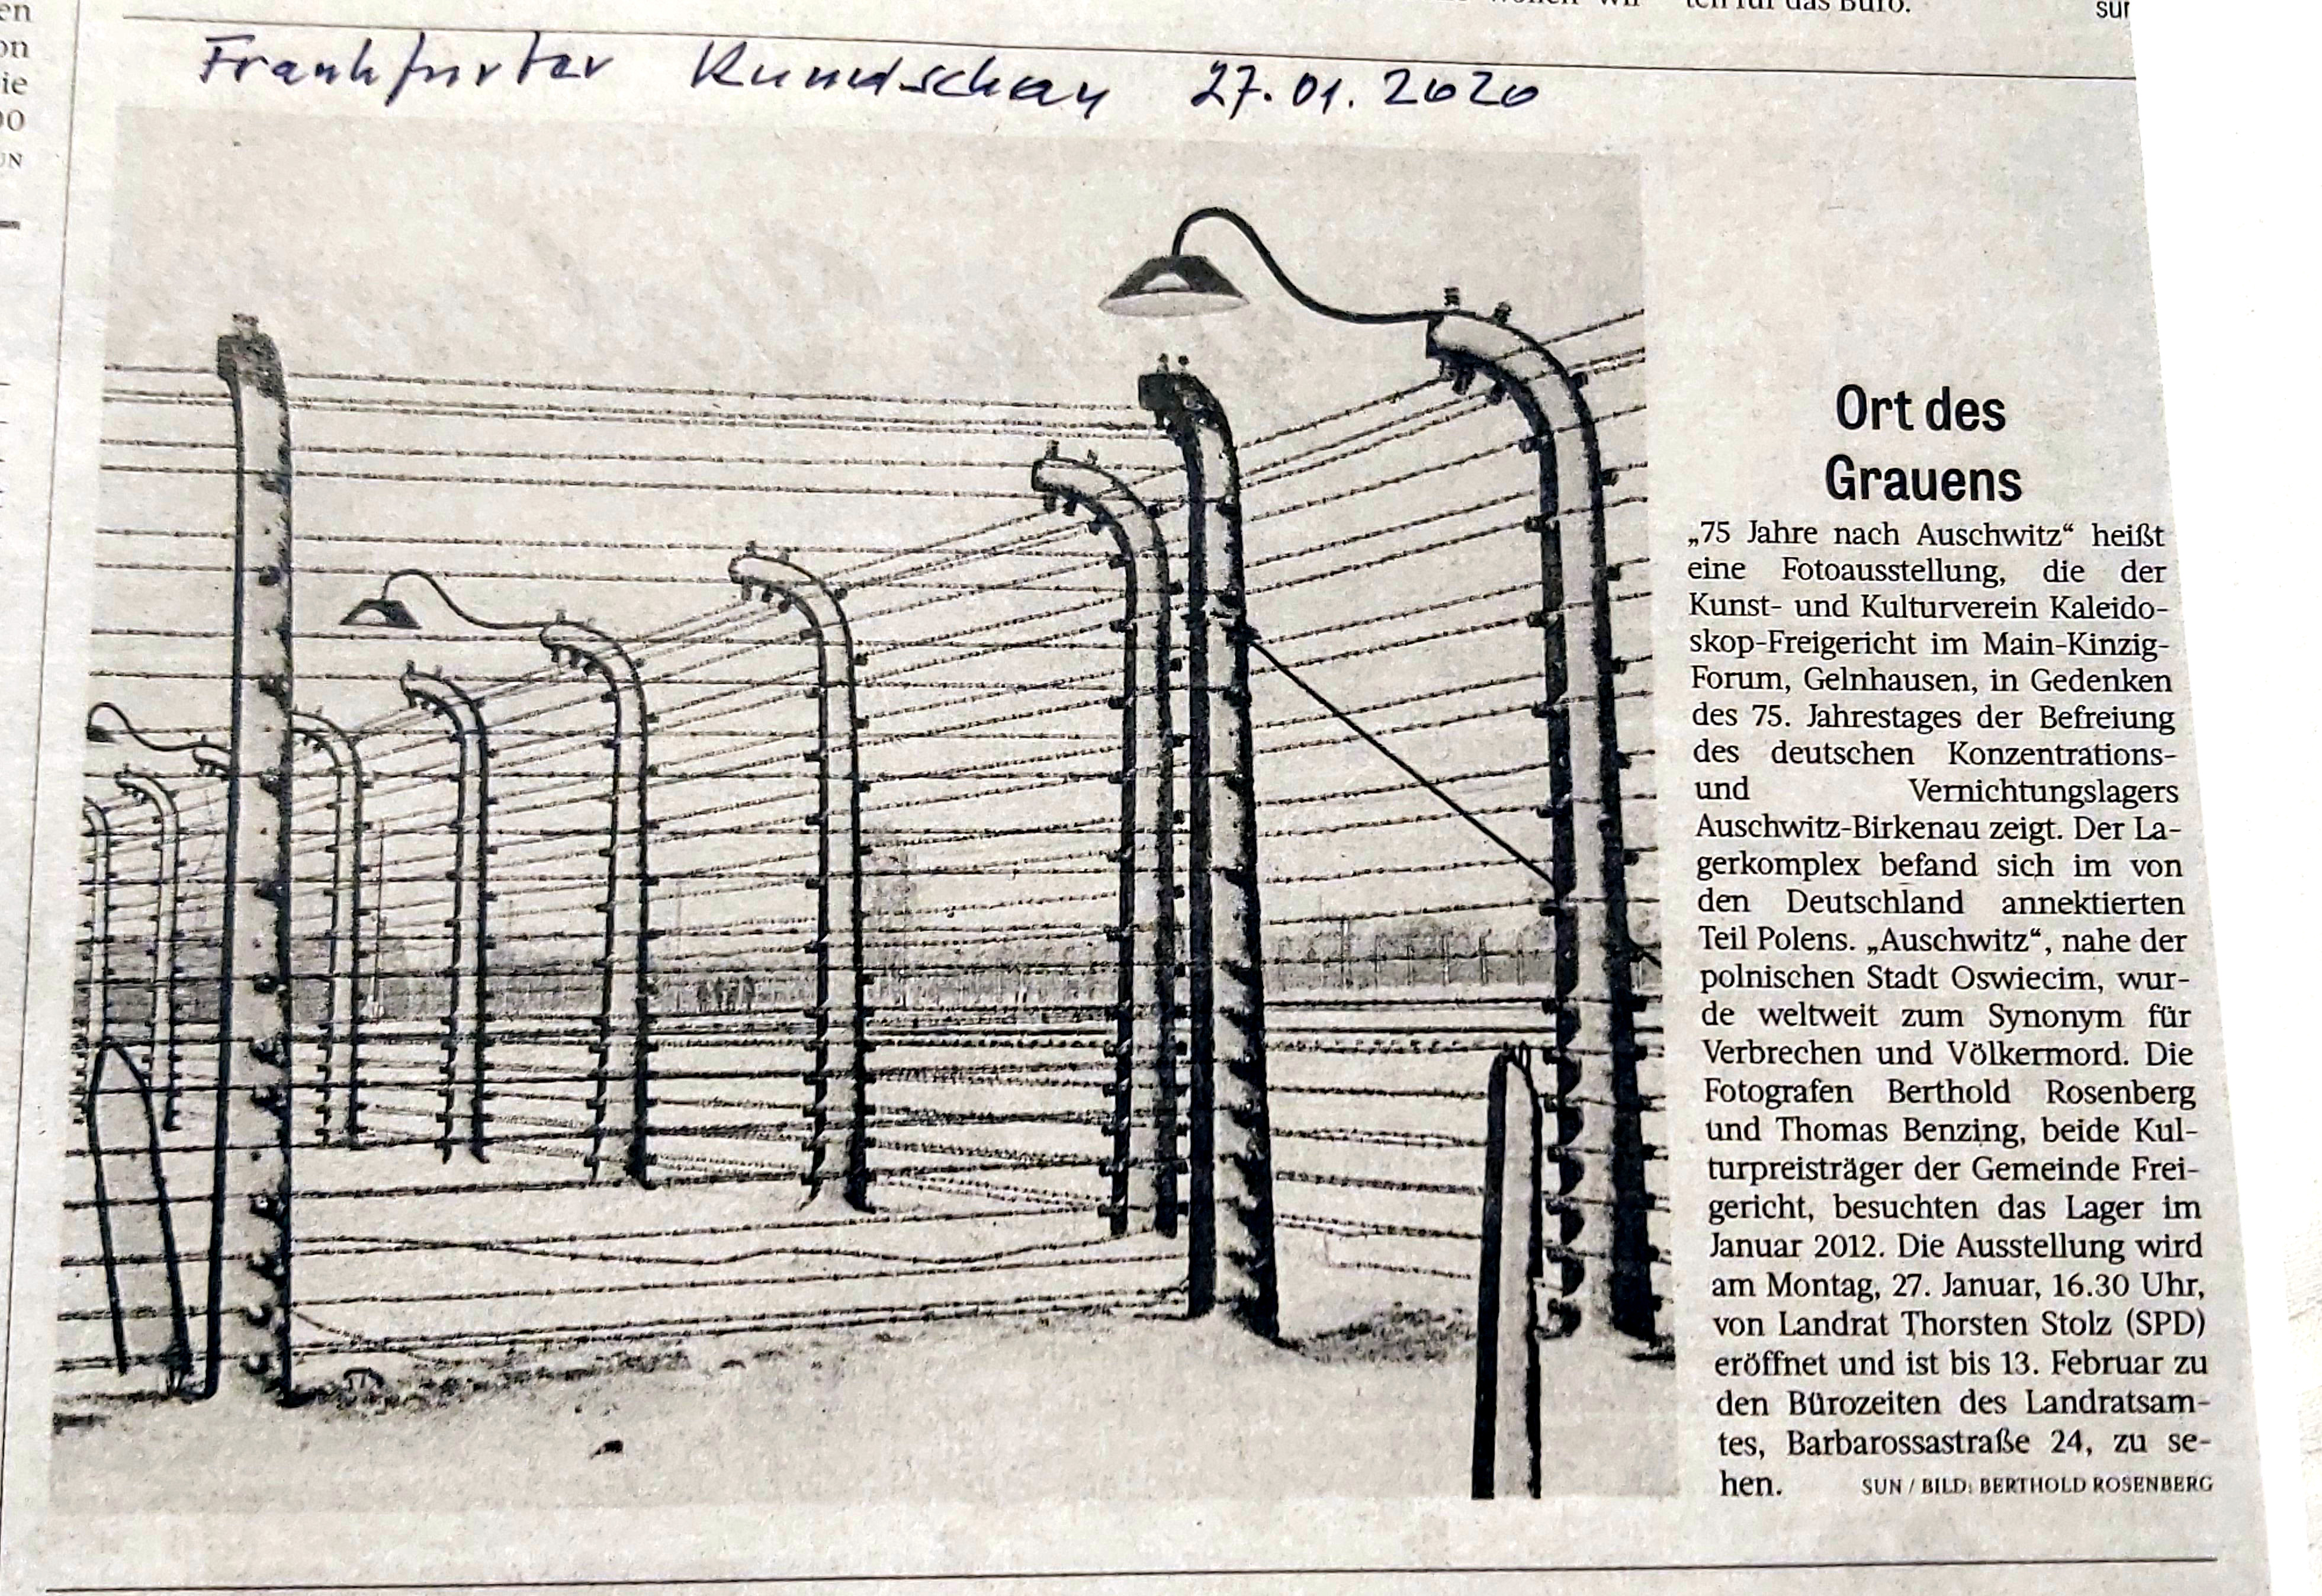 en
on
ie
00
UN
ten für das Büro.
sun
Frankfurter Rundschau 27.01.2020
Ort des
Grauens
„75 Jahre nach Auschwitz“ heißt
eine Fotoausstellung, die der
Kunst- und Kulturverein Kaleido-
skop-Freigericht im Main-Kinzig-
Forum, Gelnhausen, in Gedenken
des 75. Jahrestages der Befreiung
des deutschen Konzentrations-
und Vernichtungslagers
Auschwitz-Birkenau zeigt. Der La-
gerkomplex befand sich im von
den Deutschland annektierten
Teil Polens. „Auschwitz“, nahe der
polnischen Stadt Oswiecim, wur-
de weltweit zum Synonym für
Verbrechen und Völkermord. Die
Fotografen Berthold Rosenberg
und Thomas Benzing, beide Kul-
turpreisträger der Gemeinde Frei-
gericht, besuchten das Lager im
Januar 2012. Die Ausstellung wird
am Montag, 27. Januar, 16.30 Uhr,
von Landrat Thorsten Stolz (SPD)
eröffnet und ist bis 13. Februar zu
den Bürozeiten des Landratsam-
tes, Barbarossastraße 24, zu se-
hen. SUN / BILD: BERTHOLD ROSENBERG